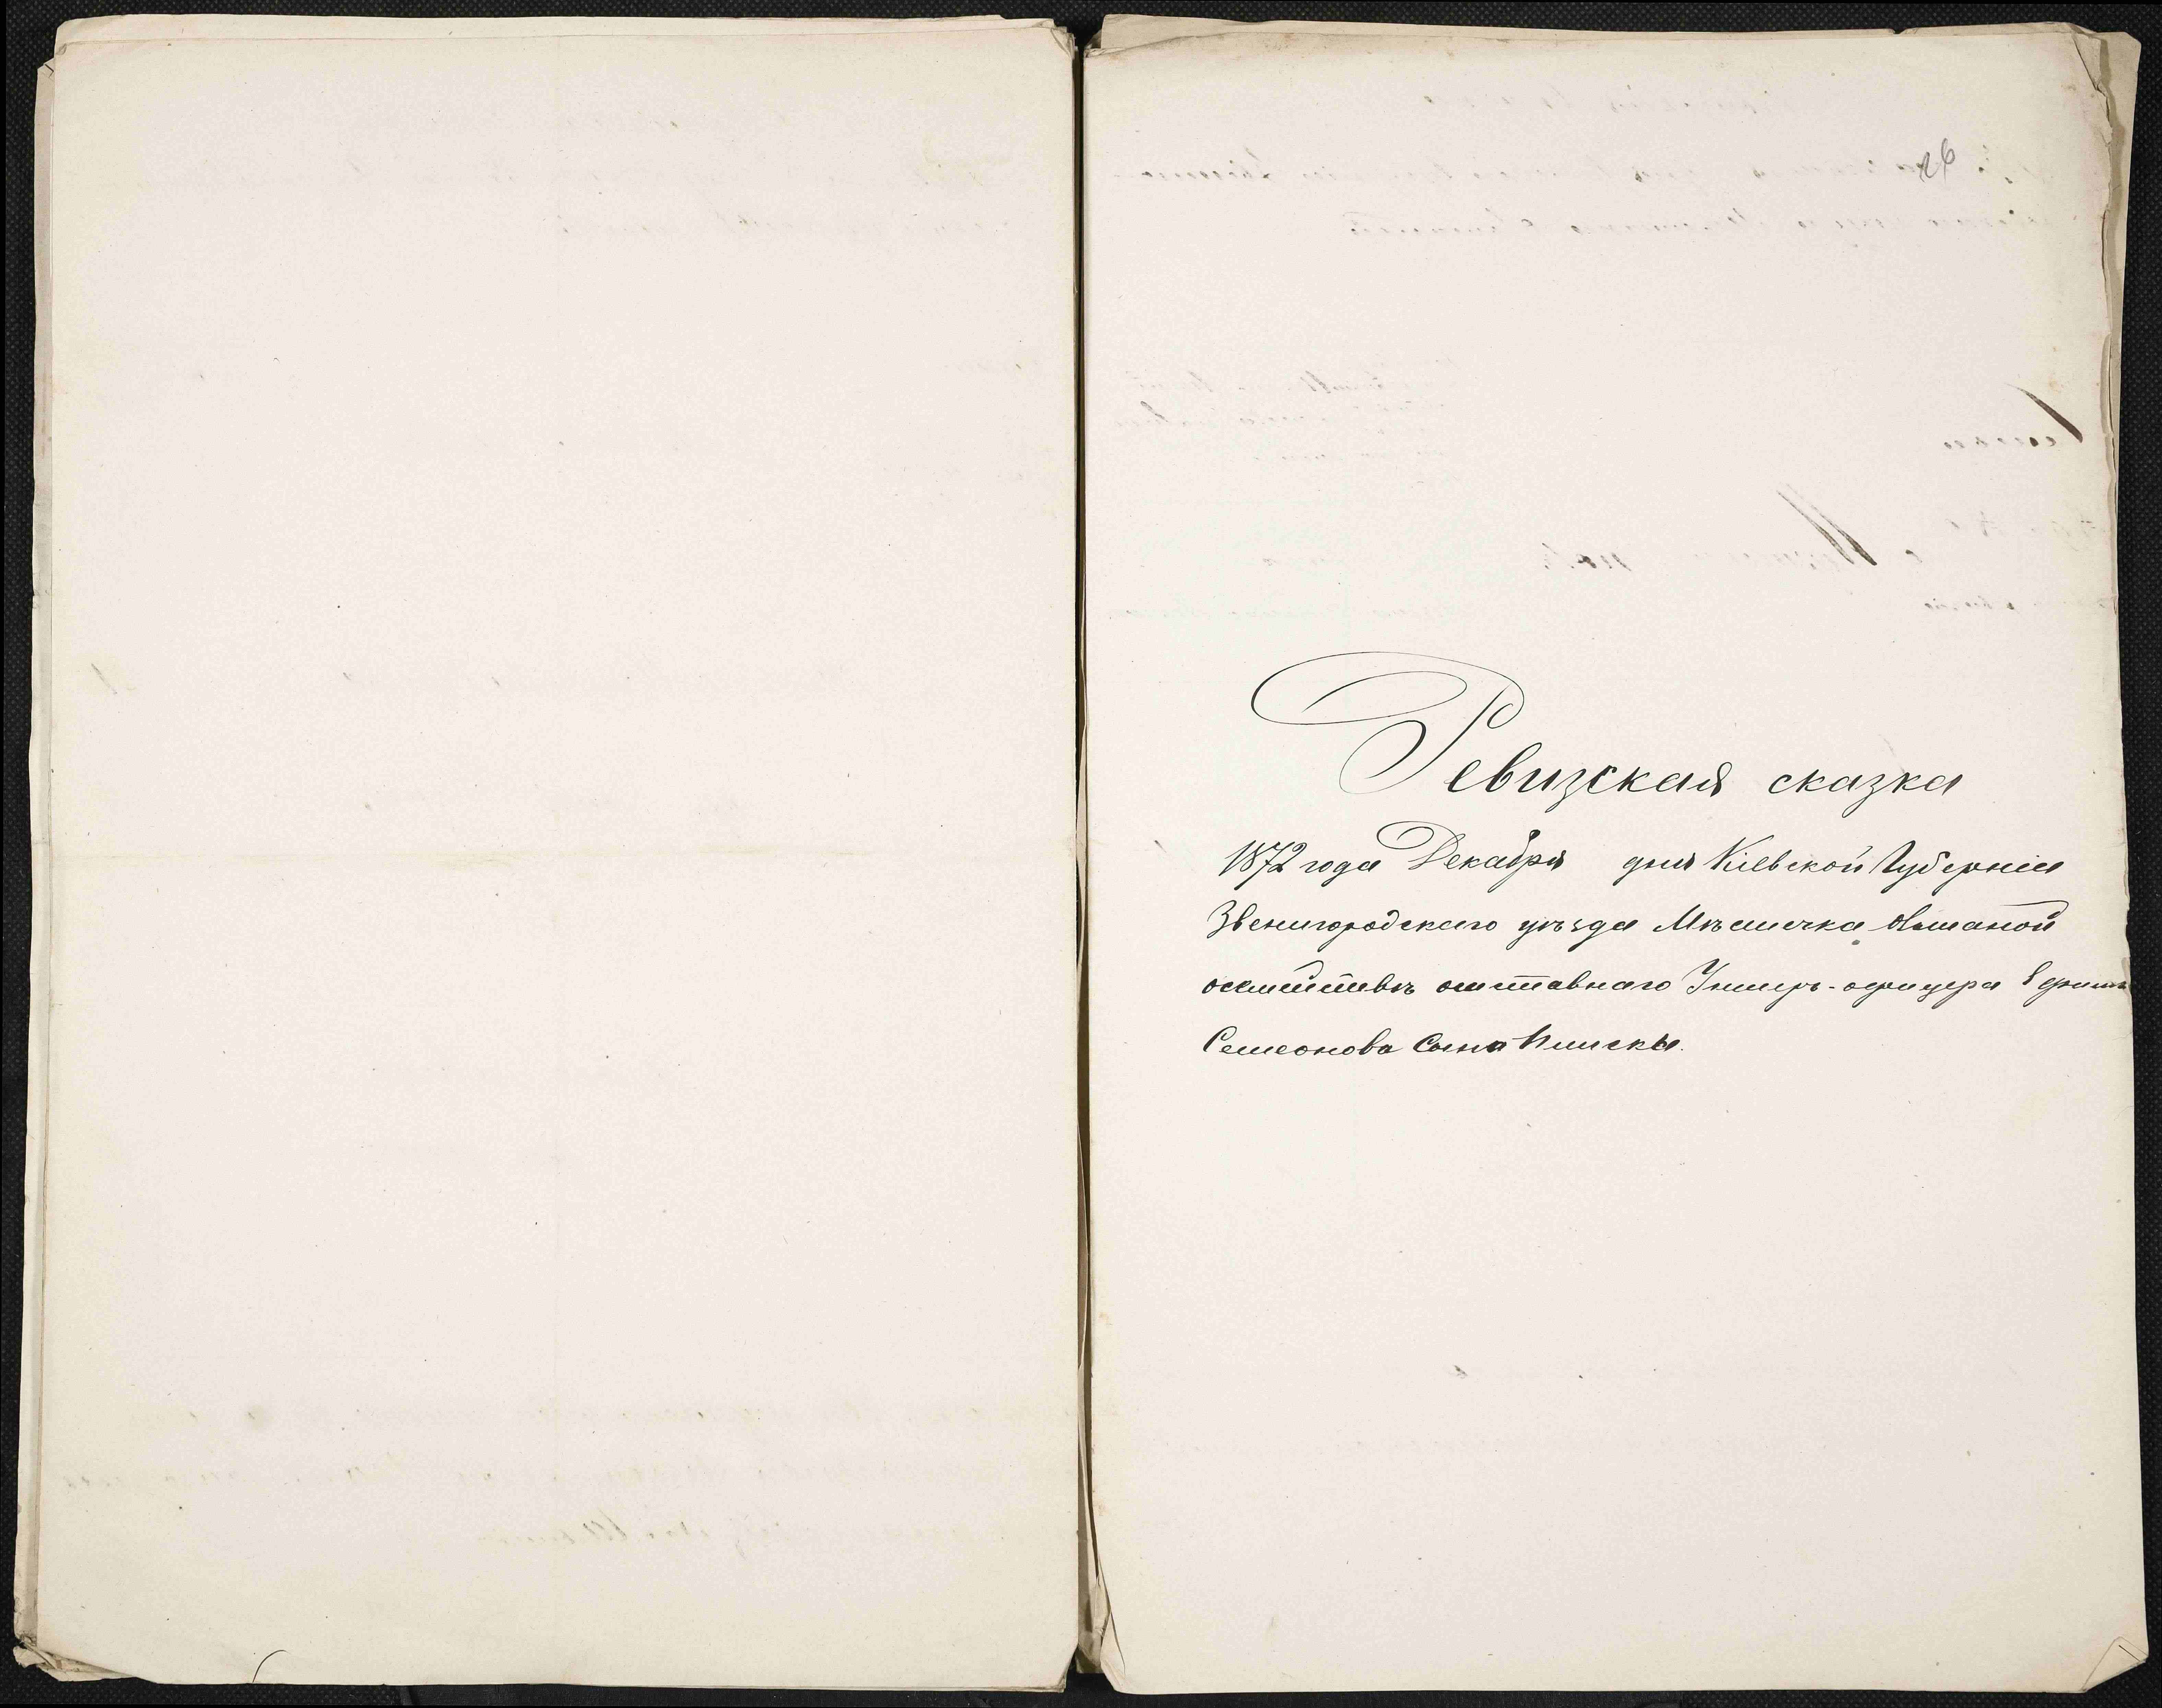 26
Ревизская сказка
1872 года Декабря дня Кіевской Губерніи
Звенигородскаго уѣзда Мѣстечка Ольшаной
о семействѣ отставнаго Унтеръ-офицера
Семеонова Сына